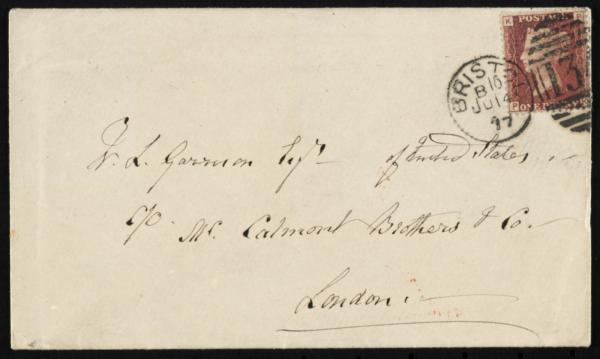 K P
POSTAGE
BRISTOL
B 10
JU 14
77
13
P K
ONE PENNY
W. L. Garrison Esqr. of United States.
c/o. Mc. Calmont Brothers & Co.
London.